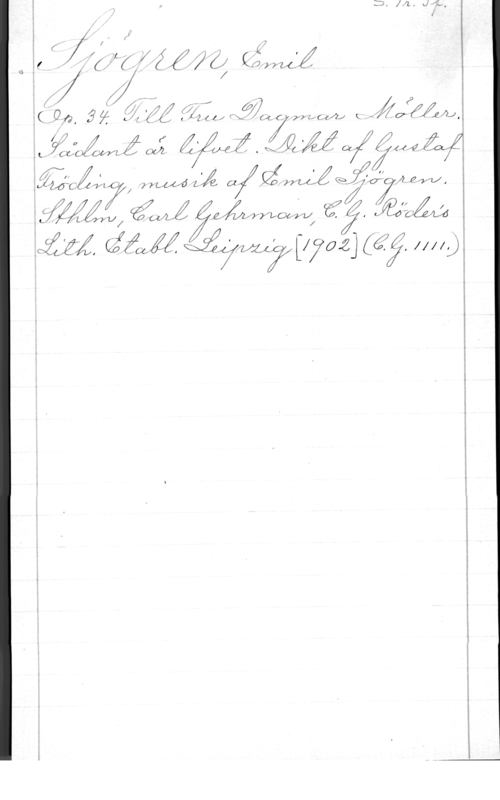 S. Tr. Sf.
Sjögren, Emil
Op. 34. Till Fru Dagmar Möller.
Sådant är lifvet. Dikt af Gustaf
Fröding, musik af Emil Sjögren.
Sthlm, Carl Gehrman, C. G. Röders
Lith. Etabl. Leipzig [1902] (C. G. 1111.)